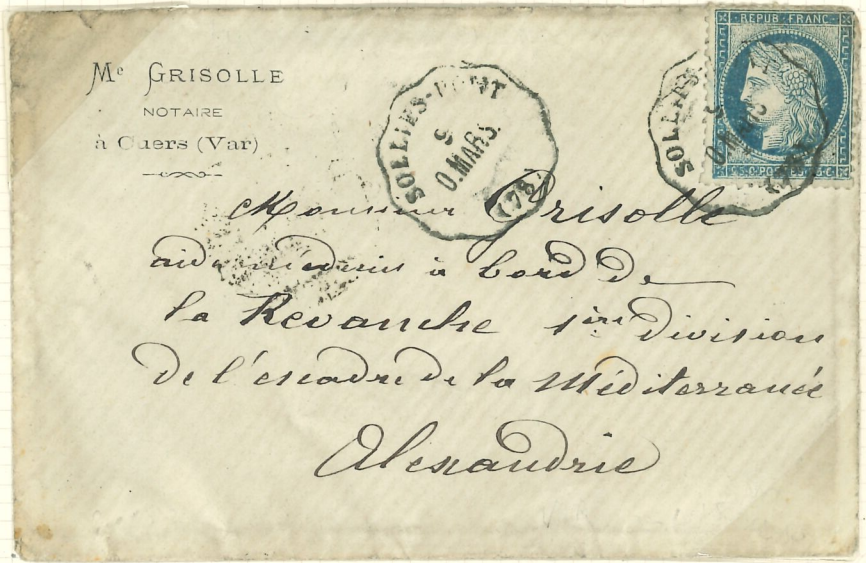 Me GRISOLLE
NOTAIRE
à Cuers (Var)
SOLLIÈS-PONT
9
MARS
(78)
REPUB. FRANC.
SOLLIÈS
MARS
(78)
Monsieur Grisolle
aide médecin à bord de
la Revanche 1ière division
de l'escadre de la Méditerranée
Alexandrie